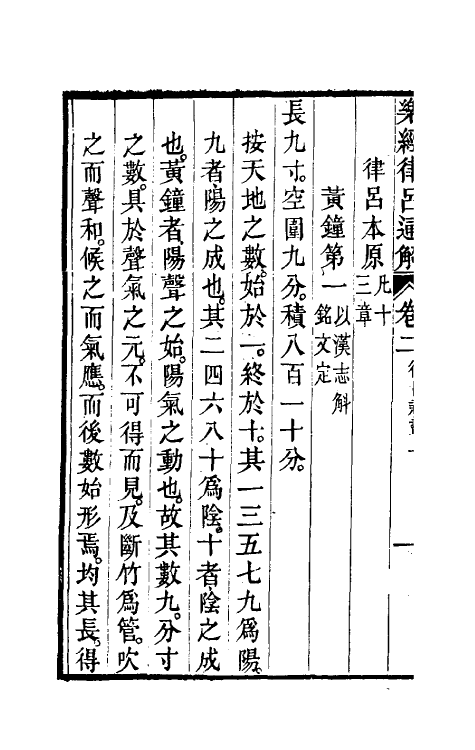 樂經律呂通解 卷二 一
律呂本原凡十三章
黃鐘第一以漢志斛銘文定
長九寸。空圍九分。積八百一十分。
按天地之數。始於一。終於十。其一三五七九爲陽。
九者陽之成也。其二四六八十爲陰。十者陰之成
也。黃鐘者陽聲之始。陽氣之動也。故其數九。分寸
之數。具於聲氣之元。不可得而見。及斷竹爲管。吹
之而聲和。候之而氣應。而後數始形焉。均其長。得